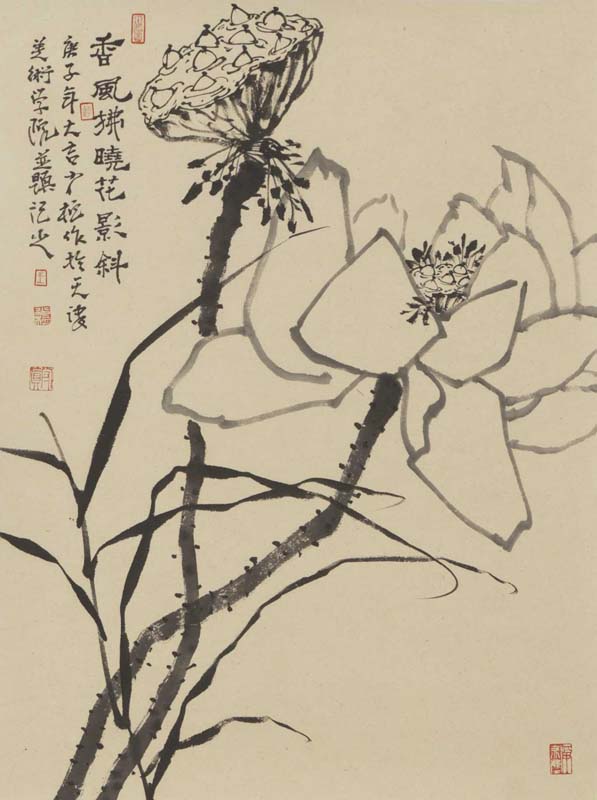 香風拂曉花影斜
庚子年大吉 作於天津
美術学院並題記之